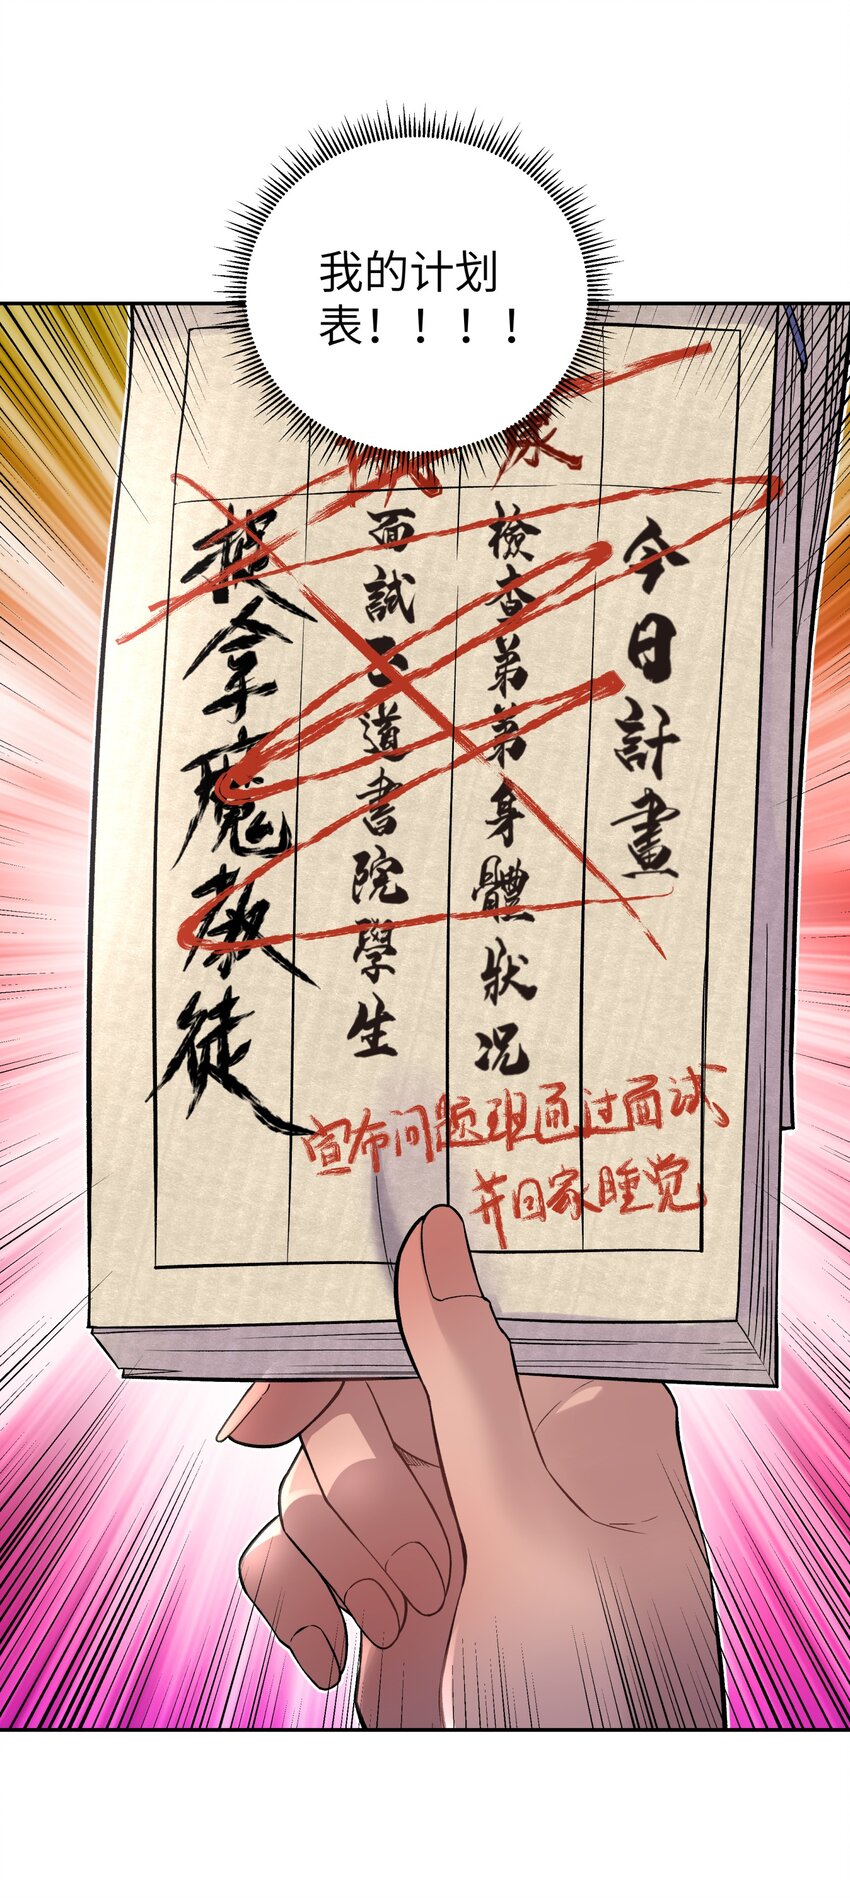 我的计划
表！！！！
今日計畫
檢查弟弟身體狀況
面試正道書院學生
捉拿魔教徒
宣布问题班通过面试
并回家睡觉